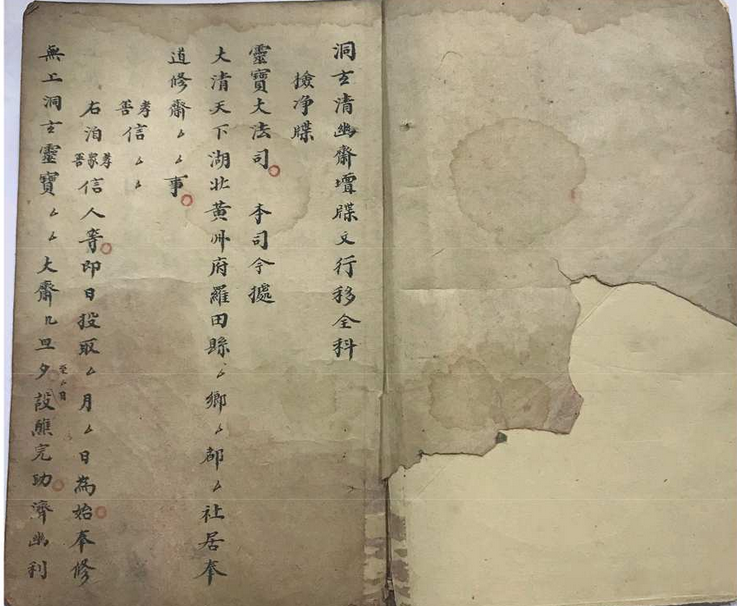 洞玄清幽齋壇牒文行移全科
撿净牒
靈寶大法司　本司今據
大清天下湖北黃州府羅田縣厶鄉厶都厶社居奉
道修齋厶厶事
孝善信厶厶
右洎孝善信人等即日投取厶月厶日為始奉修
無上洞玄靈寶厶厶大齋几旦夕至厶日設醮完功濟幽利